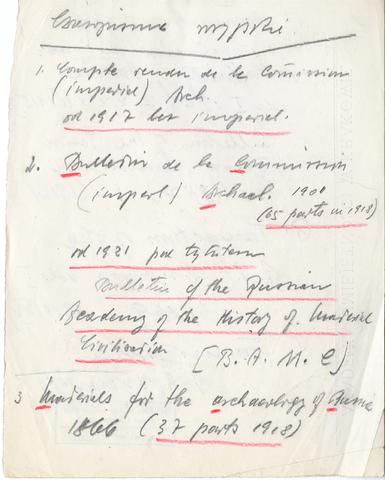 Czasopisma rosyjskie
1. Compte rendu de la Comission
(imperial) Arch.
od 1917 bez imperial.
2. Bulletin de la Commission
(imperl.) Archael. 1900
(65 parts in 1918)
od 1921 pod tytułem
Bulletin of the Russian
Academy of the History of Material
Civilisation [B. A. M. C]
3 Materials for the archaeology of Russia
1866 (37 parts 1918)